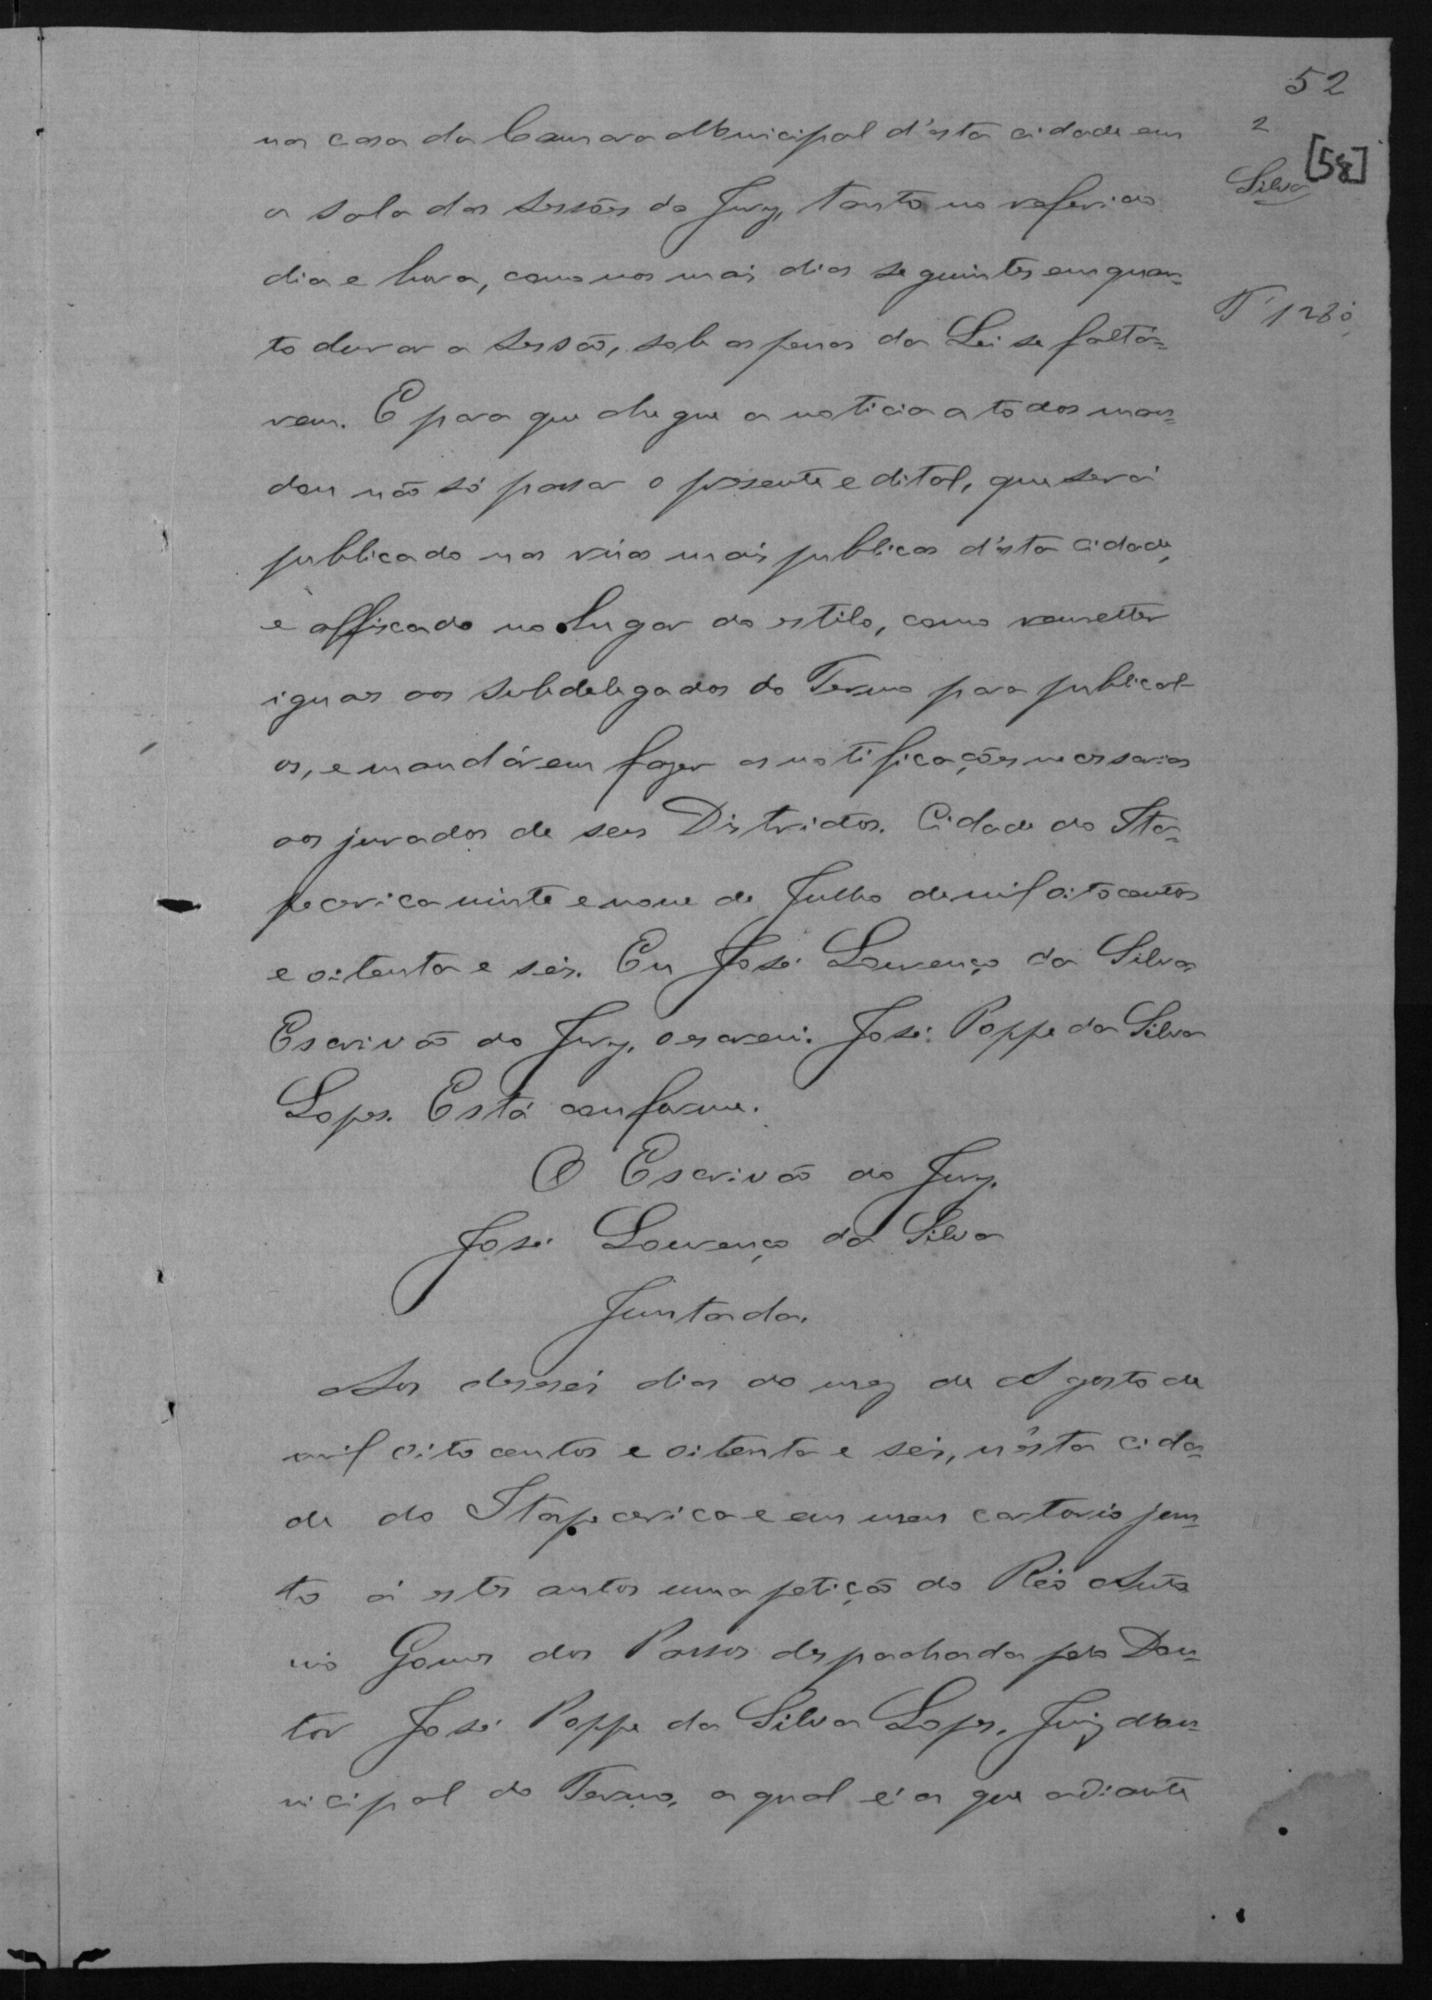 52
2
[58]
Silva
na casa da Camara Municipal d'esta cidade em
a sala das sessões do Jury, tanto no referido
dia e hora, como nos mais dias seguintes emquan=
to durar a sessão, sob as penas da Lei se faltá=
rem. E para que chegue a noticia a todos man=
dou não só passar o presente edital, que será
publicado nas ruas mais publicas d'esta cidade,
e affixado no lugar do estilo, como remetter
iguaes aos subdelegados do Termo para publical-
os, e mandárem fazer as notificações necessarias
aos jurados de seus Districtos. Cidade do Ita=
pecerica vinte e nove de Julho de mil oitocentos
e oitenta e seis. Eu José Lourenço da Silva
Escrivão do Jury, o escrevi. José Poppe da Silva
Lopes. Está conforme.
O Escrivão do Jury.
José Lourenço da Silva
Juntada.
Aos deseseis dias do mez de Agosto de
mil oitocentos e oitenta e seis, n'esta cida=
de do Itapecerica e em meu cartorio jun=
to á estes autos uma petição do Réo Anto
nio Gomes dos Passos despachada pelo Dou=
tor José Poppe da Silva Lopes, Juiz Mu=
nicipal do Termo, a qual é a que adiante